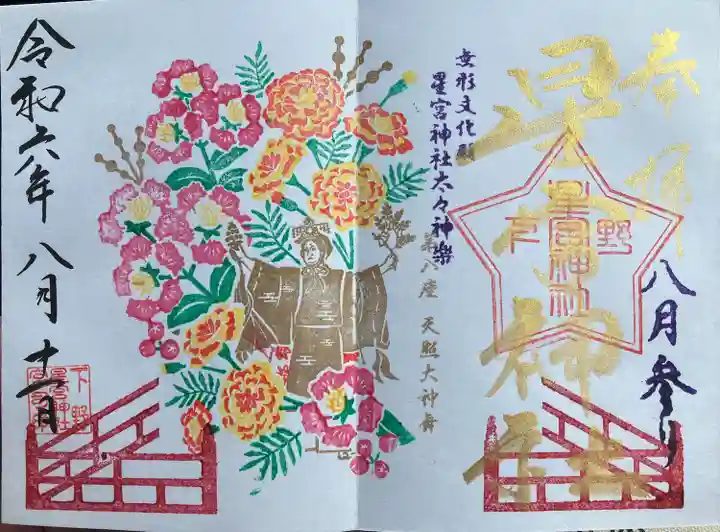 奉拝
星宮神社
下野
星宮神社
八月参り
無形文化財
星宮神社太々神楽
第八座 天照大神舞
令和六年八月十一日
下野
星宮神社